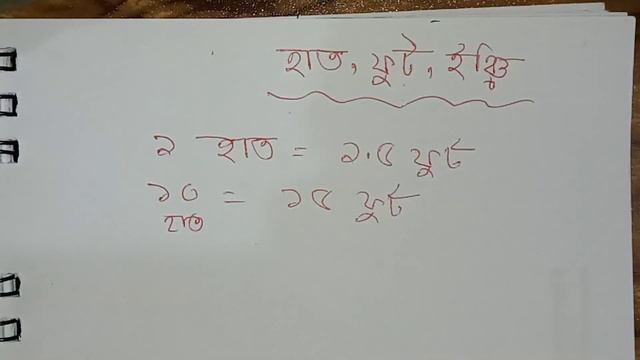 হাত, ফুট, ইঞ্চি
১ হাত = ১.৫ ফুট
১০ = ১৫ ফুট
হাত